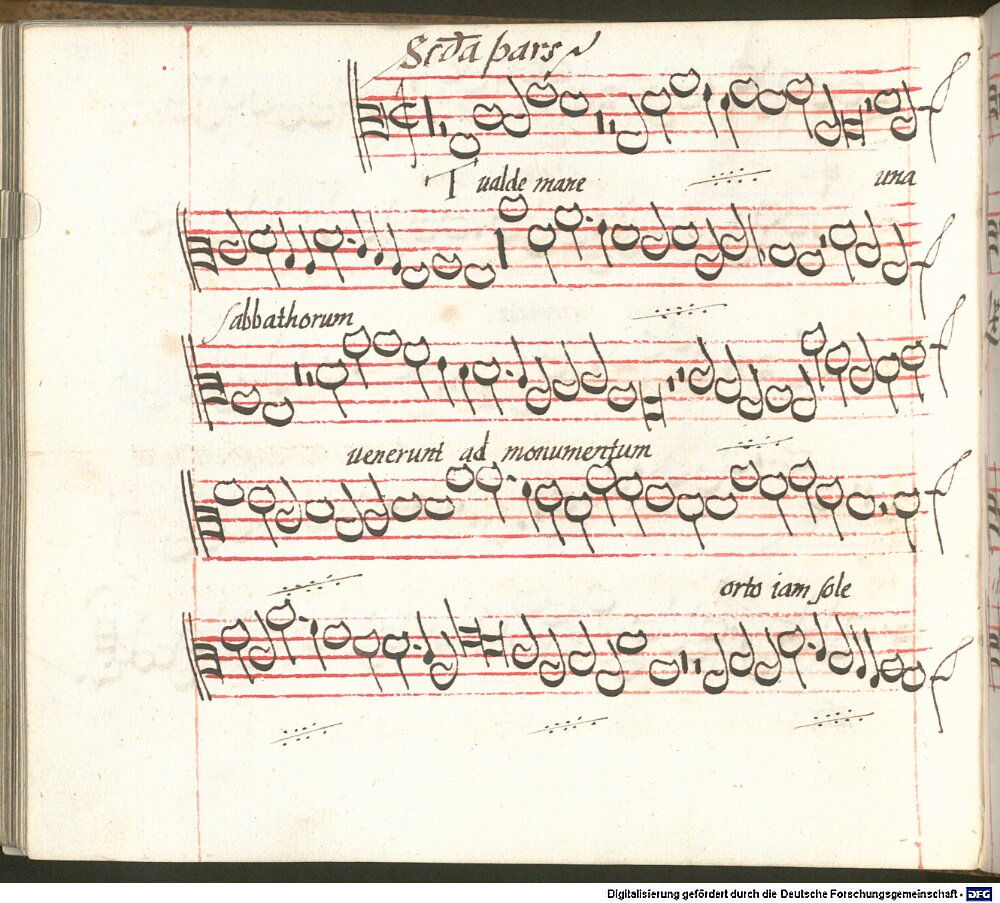 Scđa pars
Et ualde mane una
sabbathorum
uenerunt ad monumentum
orto iam sole
Digitalisierung gefördert durch die Deutsche Forschungsgemeinschaft - DFG